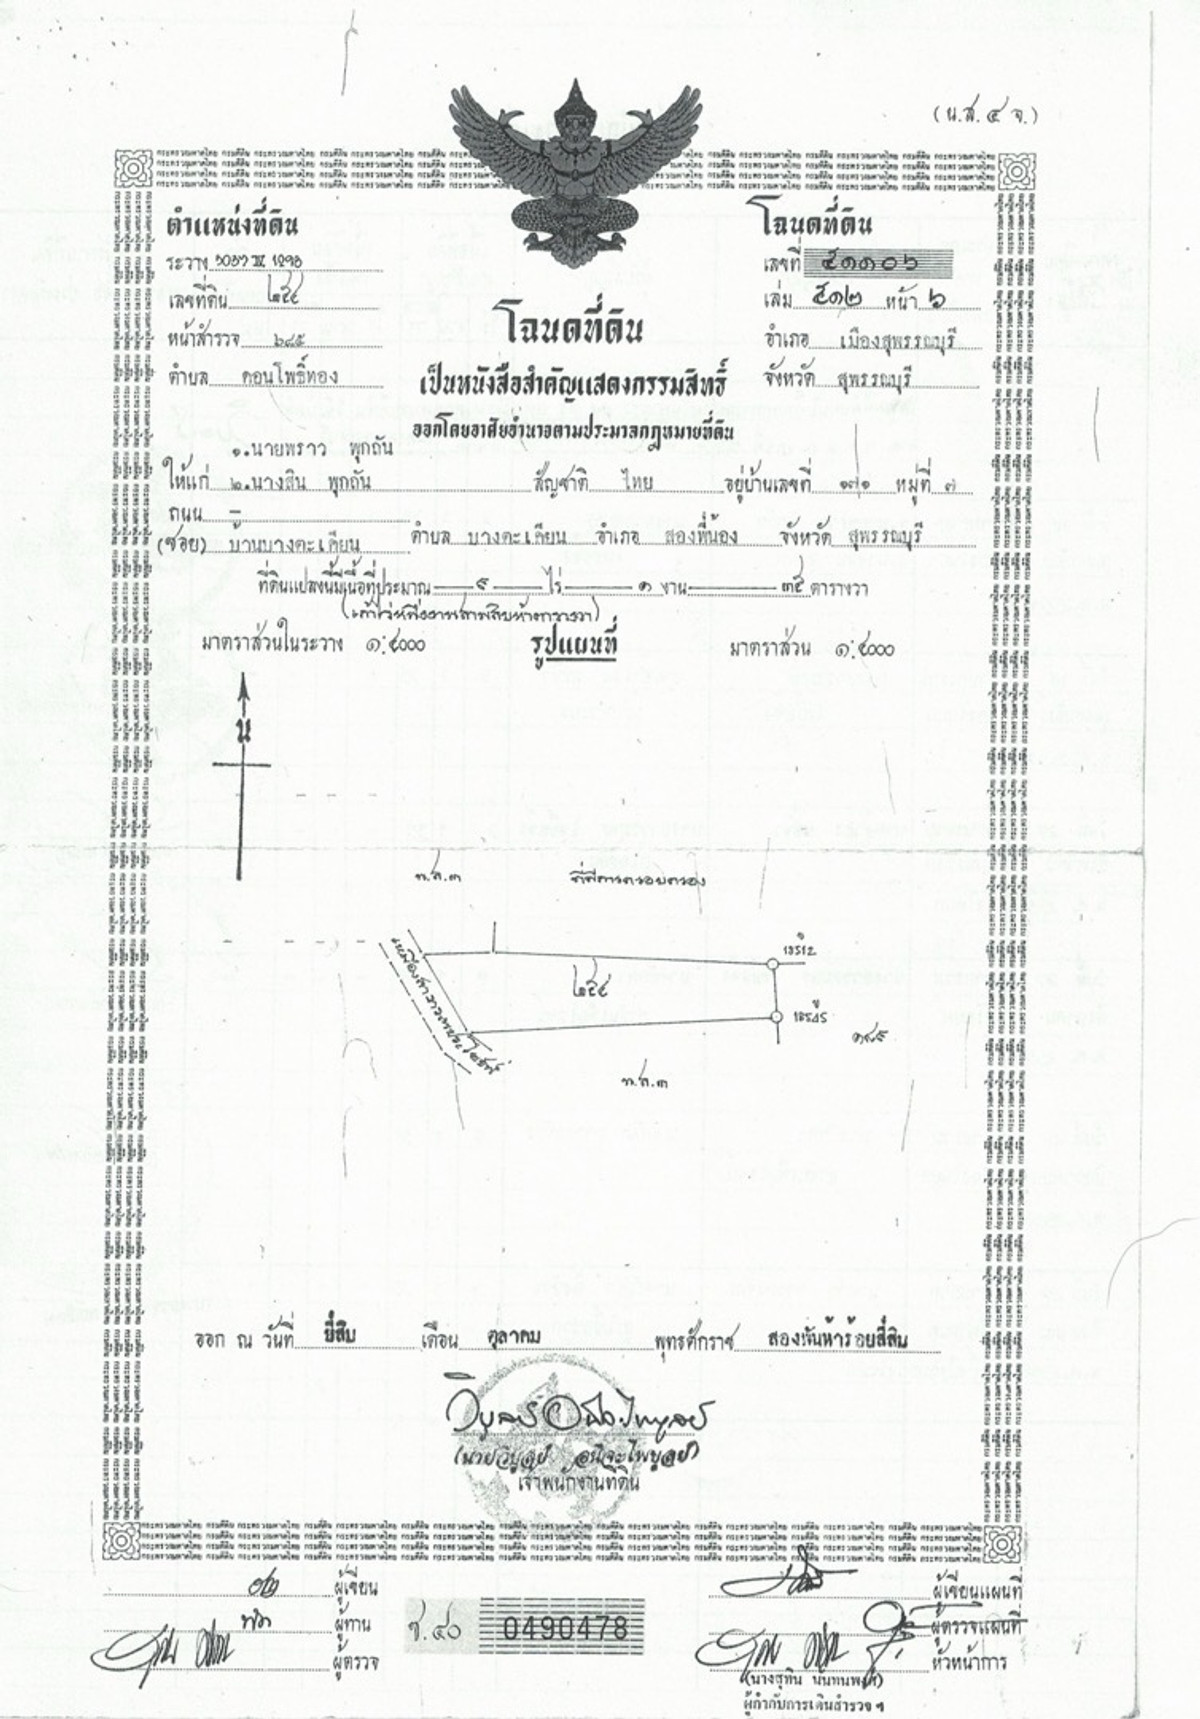 (น.ส.๔ จ.)
ตำแหน่งที่ดิน
โฉนดที่ดิน
ระวาง
เลขที่ ๕๑๑๐๖
เลขที่ดิน ๒๕๔
เล่ม ๕๑๒ หน้า ๖
หน้าสำรวจ ๖๘๕
อำเภอ เมืองสุพรรณบุรี
ตำบล ดอนโพธิ์ทอง
จังหวัด สุพรรณบุรี
โฉนดที่ดิน
เป็นหนังสือสำคัญแสดงกรรมสิทธิ์
ออกโดยอาศัยอำนาจตามประมวลกฎหมายที่ดิน
๑.นายพราว พุกถัน
ให้แก่ ๒.นางสิน พุกถัน สัญชาติ ไทย อยู่บ้านเลขที่ ๑๗๑ หมู่ที่ ๗
ถนน –
(ซอย) บ้านบางตะเคียน ตำบล บางตะเคียน อำเภอ สองพี่น้อง จังหวัด สุพรรณบุรี
ที่ดินแปลงนี้มีเนื้อที่ประมาณ ๙ ไร่ ๑ งาน ๓๕ ตารางวา
(เก้าไร่หนึ่งงานสามสิบห้าตารางวา)
มาตราส่วนในระวาง ๑:๔๐๐๐ รูปแผนที่ มาตราส่วน ๑:๔๐๐๐
น
น.ส.๓ ที่มีการครอบครอง
๒๕๔
๑๘๙
น.ส.๓
ออก ณ วันที่ ยี่สิบ เดือน ตุลาคม พุทธศักราช สองพันห้าร้อยสี่สิบ
(นายวิบูลย์ อนิจะไพบูลย์)
เจ้าพนักงานที่ดิน
ผู้เขียน
ผู้ทาน
ผู้ตรวจ
ช.๔๐ 0490478
ผู้เขียนแผนที่
ผู้ตรวจแผนที่
หัวหน้าการ
(นางสุทิน นันทนพงศ์)
ผู้กำกับการเดินสำรวจฯ